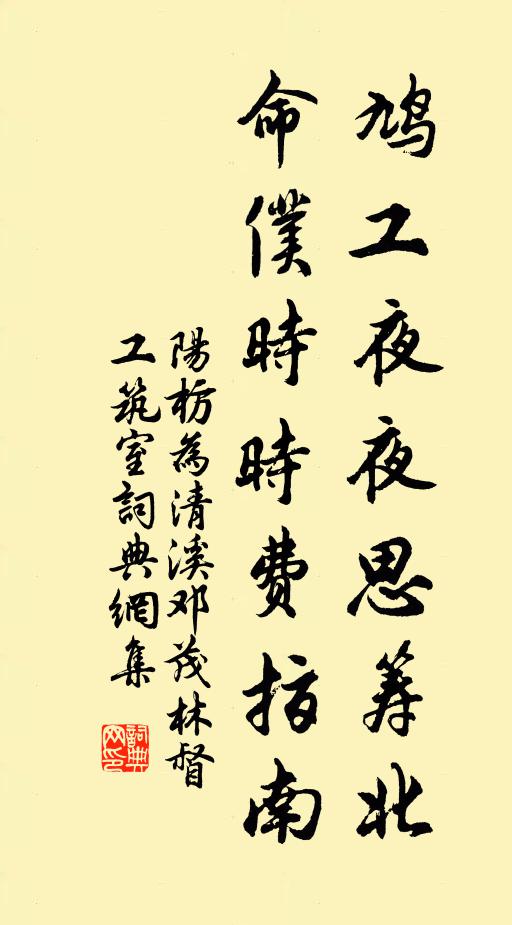 鸠工夜夜思筹北
命僕時時費指南
陽枋為清溪邓茂林督
工筑室詞典網集
詞典网印